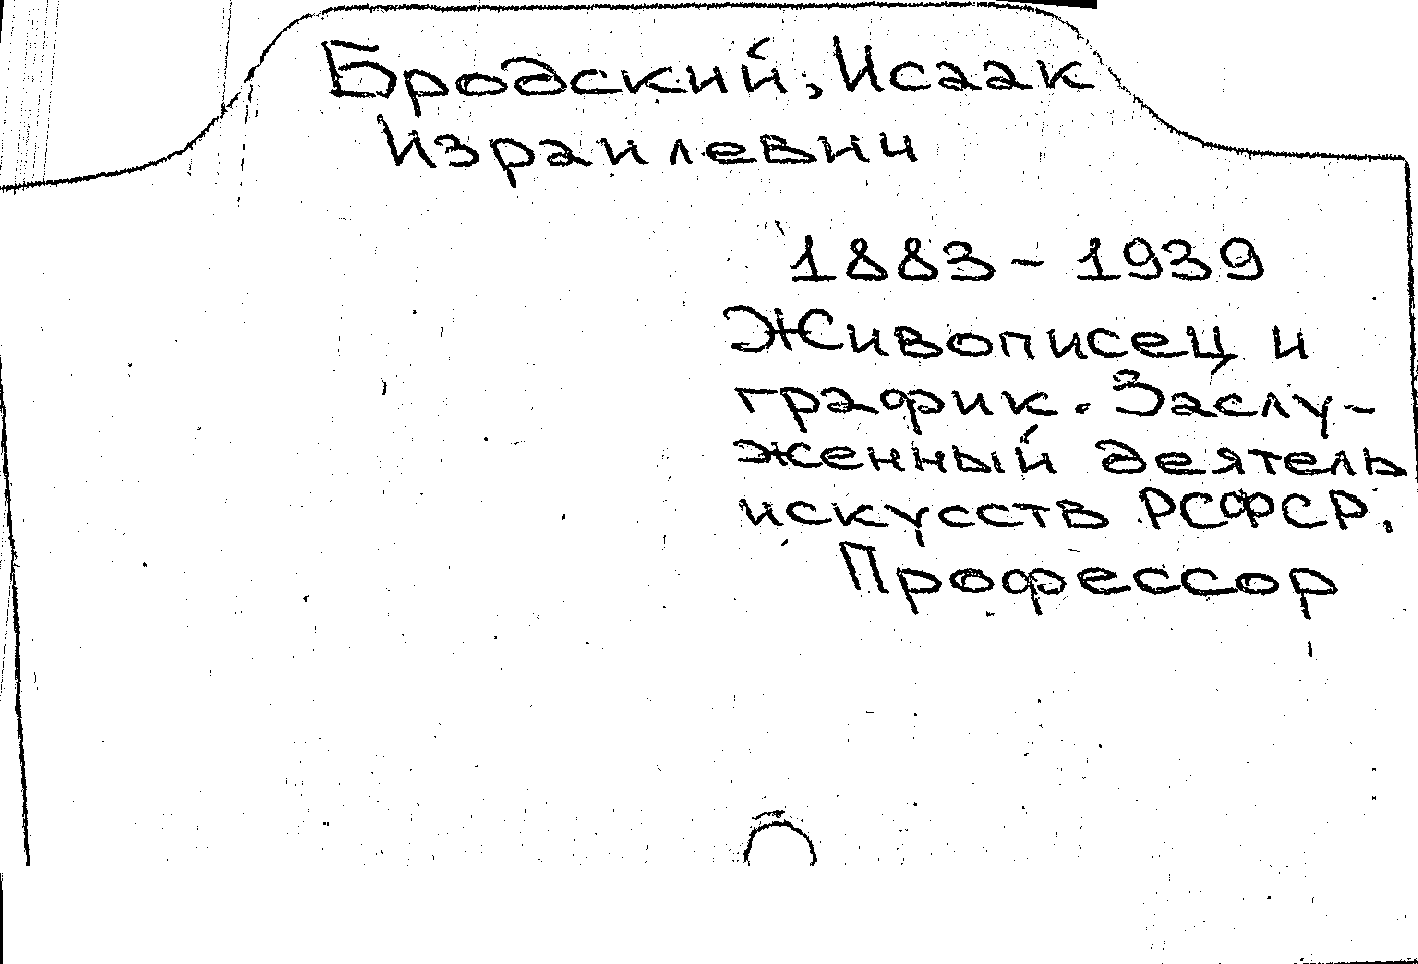 Бродский, Исаак
Израилевич
1883-1939
Живописец и
график. Заслу-
женный деятель
искусств РСФСР.
Профессор